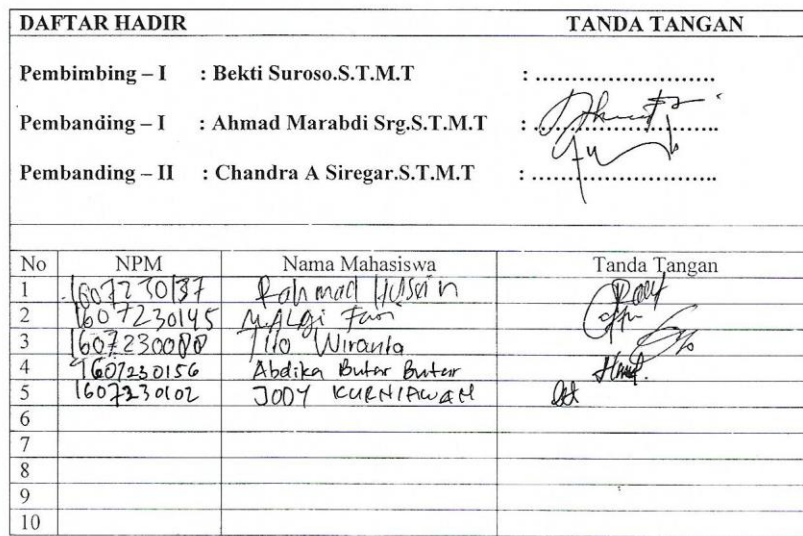 DAFTAR HADIR TANDA TANGAN
Pembimbing – I : Bekti Suroso.S.T.M.T : ..........................
Pembanding – I : Ahmad Marabdi Srg.S.T.M.T : ..........................
Pembanding – II : Chandra A Siregar.S.T.M.T : ..........................
No NPM Nama Mahasiswa Tanda Tangan
1 1607230137 Rahmad Husein
2 1607230145
3 1607230088 Wiranto
4 1607230156 Abdika Butar Butar
5 1607230102 JODY KURNIAWAN
6
7
8
9
10